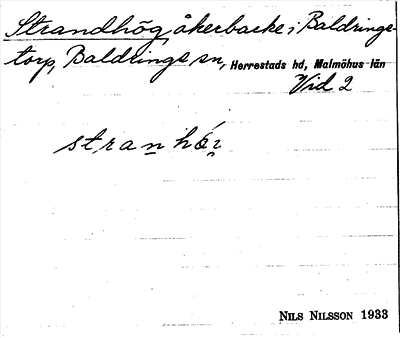 Strandhög, åkerbacke i Baldringe-
torp, Baldringe sn, Herrestads hd, Malmöhus län
Vid 2
NILS NILSSON 1933